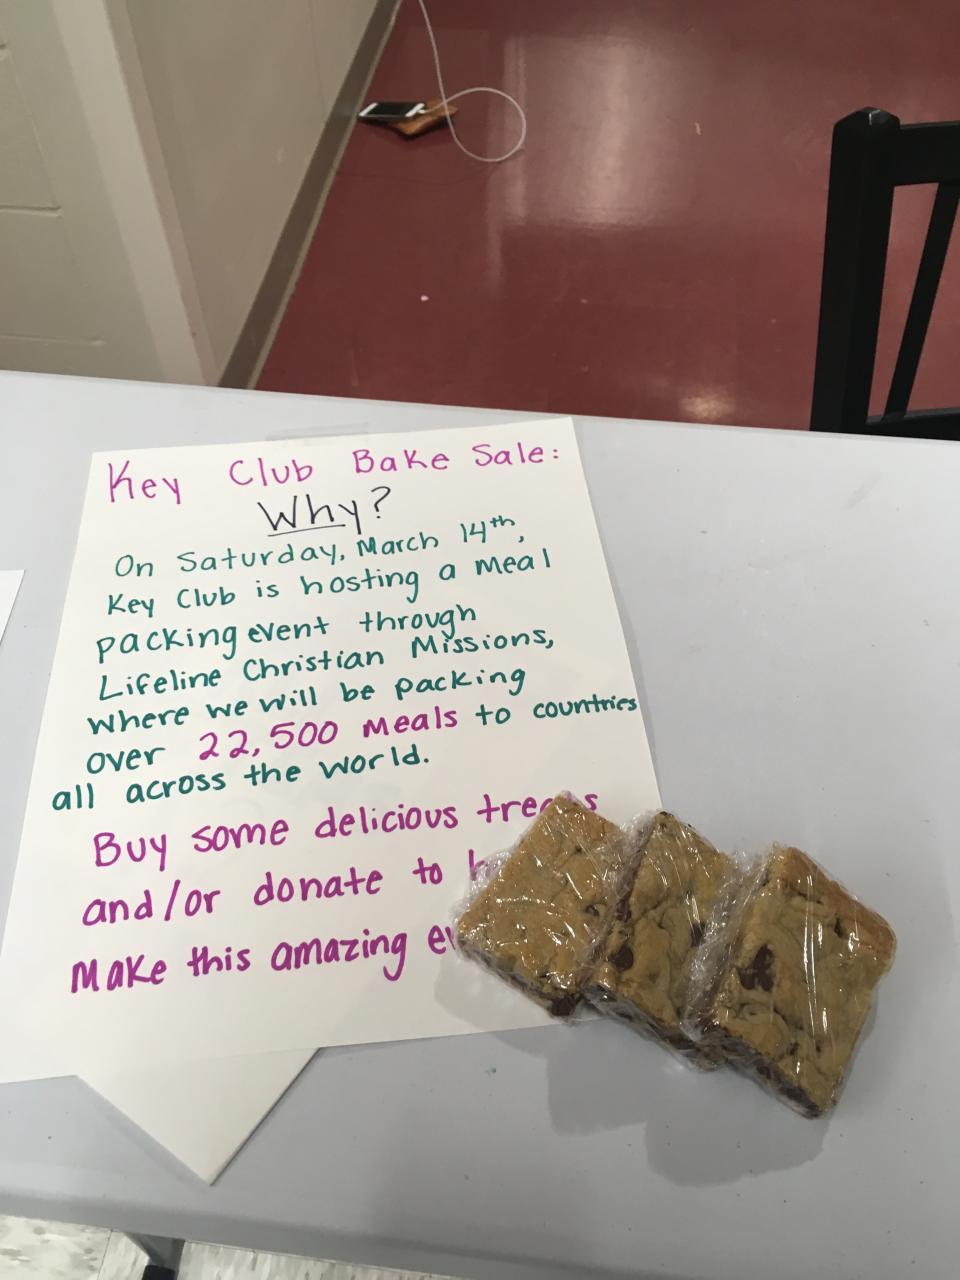 Key Club Bake Sale:
Why?
On Saturday, March 14th,
Key Club is hosting a meal
packing event through
Lifeline Christian Missions,
where we will be packing
over 22,500 meals to countries
all across the world.
Buy some delicious treats
and/or donate to
Make this amazing